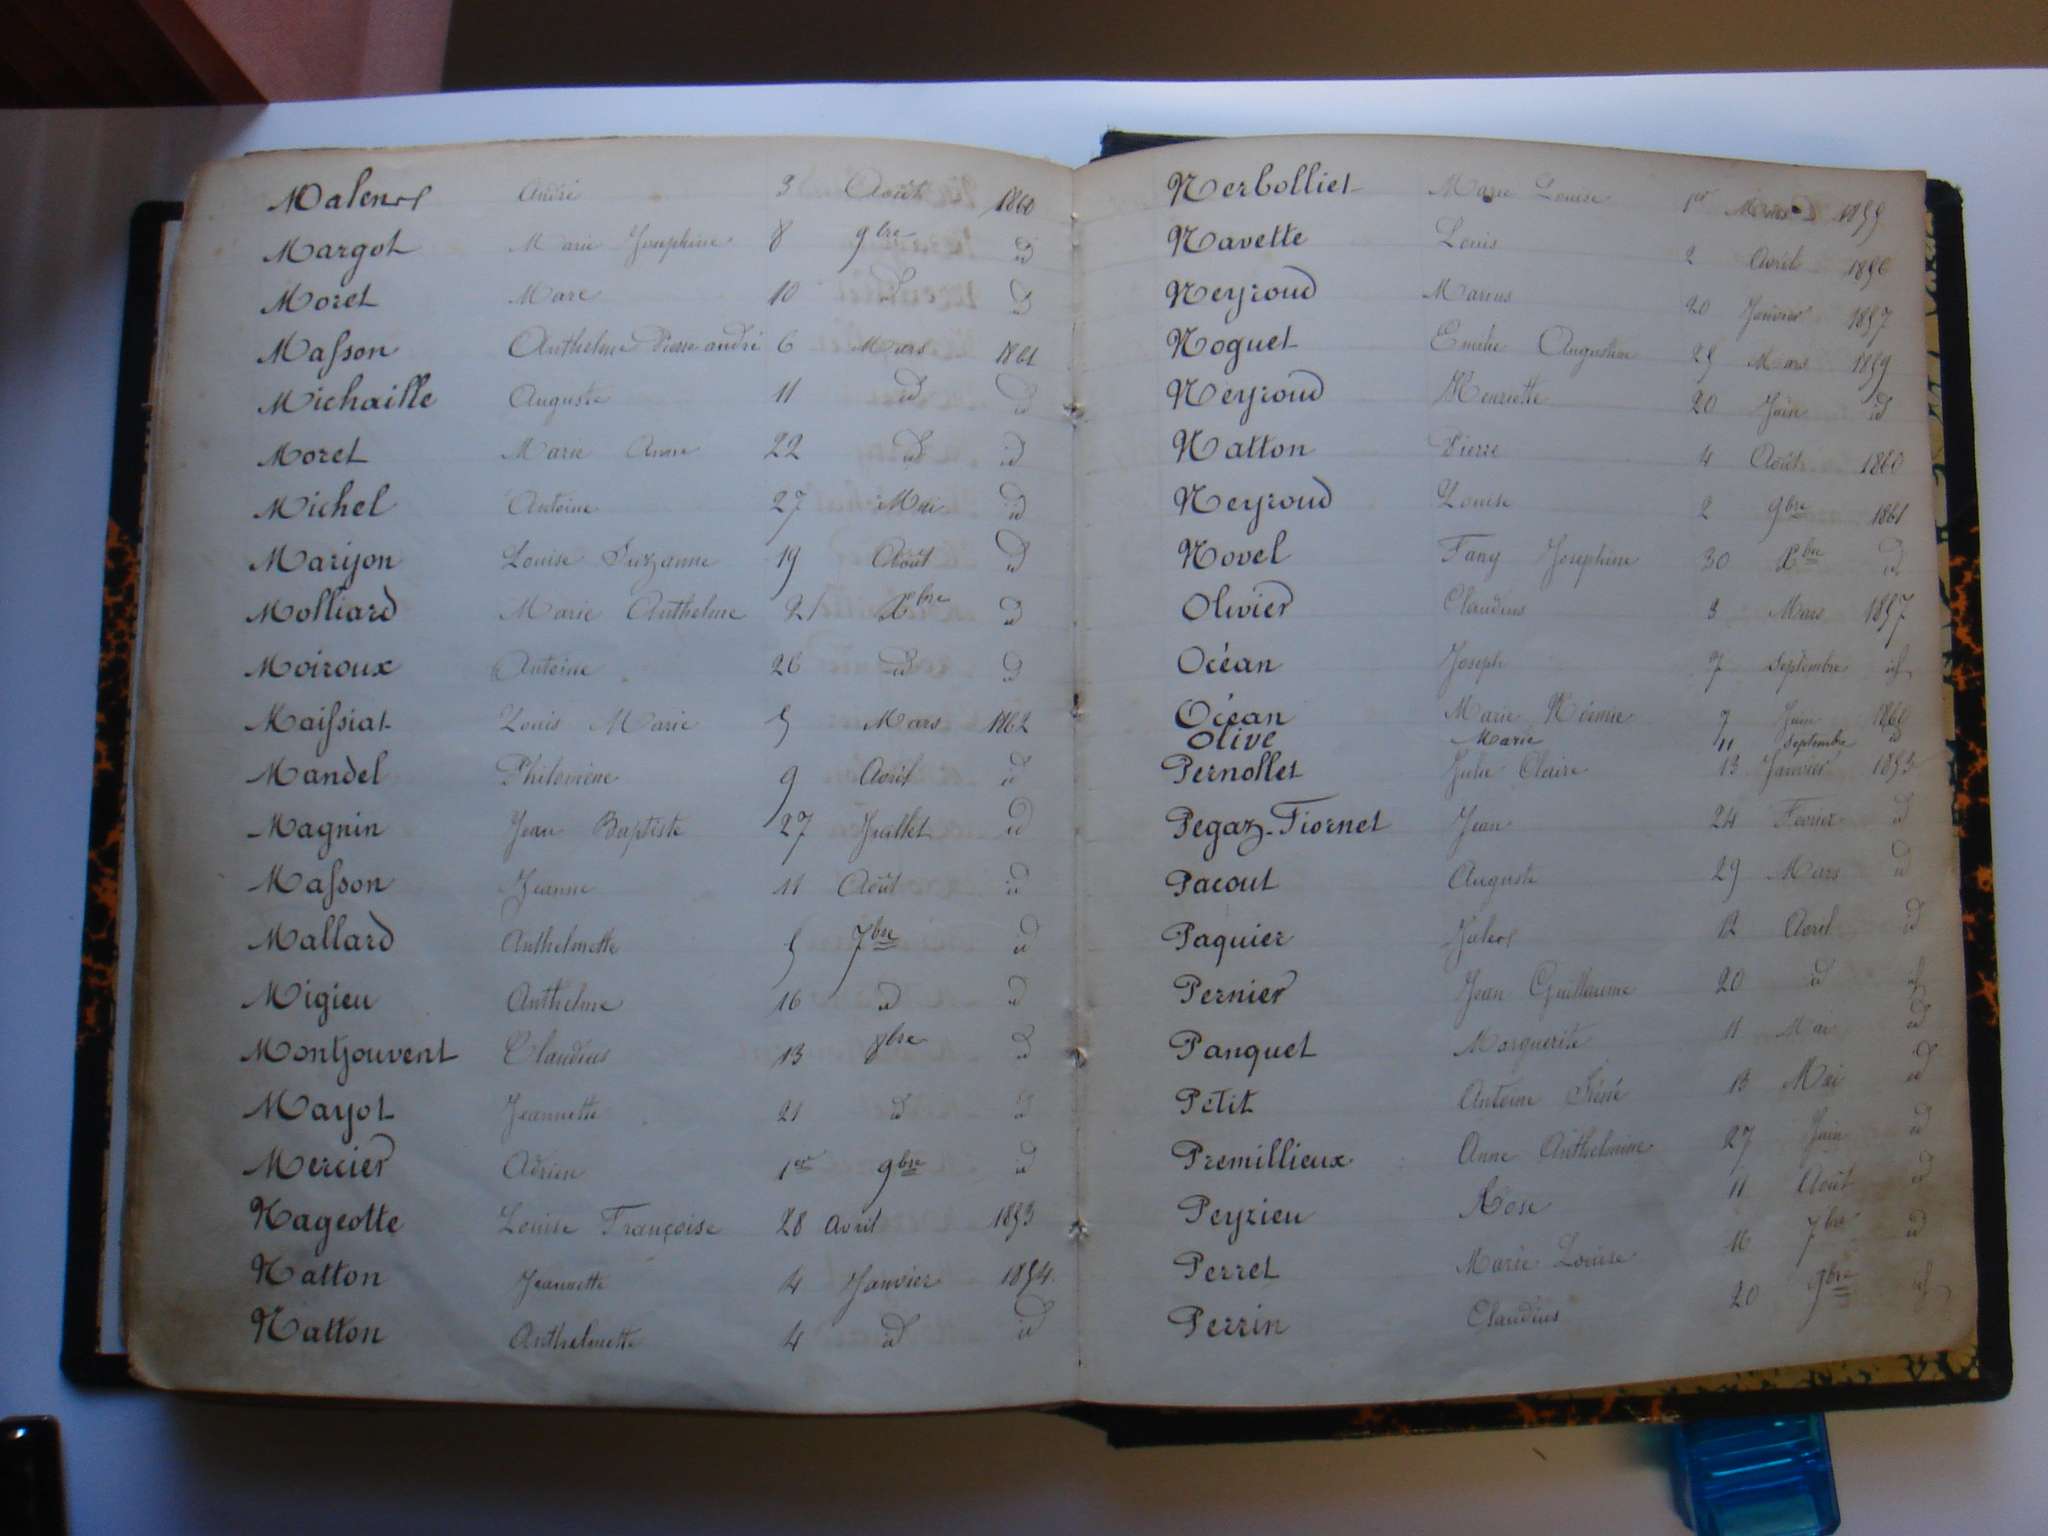 Malençs André 3 Août 1860
Margot Marie Josephine 8 9bre id
Moret Marc 10 id id
Masson Anthelme Pierre andré 6 Mars 1861
Michaille Auguste 11 id id
Moret Marie Anne 22 id id
Michel Antoine 27 Mai id
Marijon Louise Suzanne 19 Août id
Molliard Marie Anthelme 21 Xbre id
Moiroux Antoine 26 id id
Maissiat Louis Marie 5 Mars 1862
Mandel Philomène 9 Avril id
Magnin Jean Baptiste 27 Juillet id
Masson Jeanne 11 Août id
Mallard Anthelmette 5 7bre id
Migieu Anthelme 16 id id
Montjouvent Claudius 13 8bre id
Mayot Jeannette 21 id id
Mercier Adrien 1er 9bre id
Nageotte Louise Françoise 28 Avril 1853
Natton Jeannette 4 Janvier 1854
Natton Anthelmette 4 id id
Nerbolliet Marie Louise 1er Mars 1855
Navette Louis 2 Avril 1856
Neyroud Marius 20 Janvier 1857
Noguet Emilie Augustine 25 Mars 1859
Neyroud Henriette 20 Juin id
Natton Pierre 4 Août 1860
Neyroud Louise 2 9bre 1861
Novel Fany Josephine 30 Xbre id
Olivier Claudius 3 Mars 1857
Océan Joseph 7 Septembre id
Océan Marie Noémie 7 Juin 1860
Olive Marie 11 Septembre id
Pernollet Julie Claire 13 Janvier 1853
Pegaz-Fiornet Jean 24 Fevrier id
Pacout Auguste 29 Mars id
Paquier Jules 12 Avril id
Pernier Jean Guillaume 20 id id
Panquet Marguerite 11 Mai id
Petit Antoine Réné 13 Mai id
Premillieux Anne Anthelmine 27 Juin id
Peyrieu Rose 11 Août id
Perret Marie Louise 16 7bre id
Perrin Claudius 20 9bre id